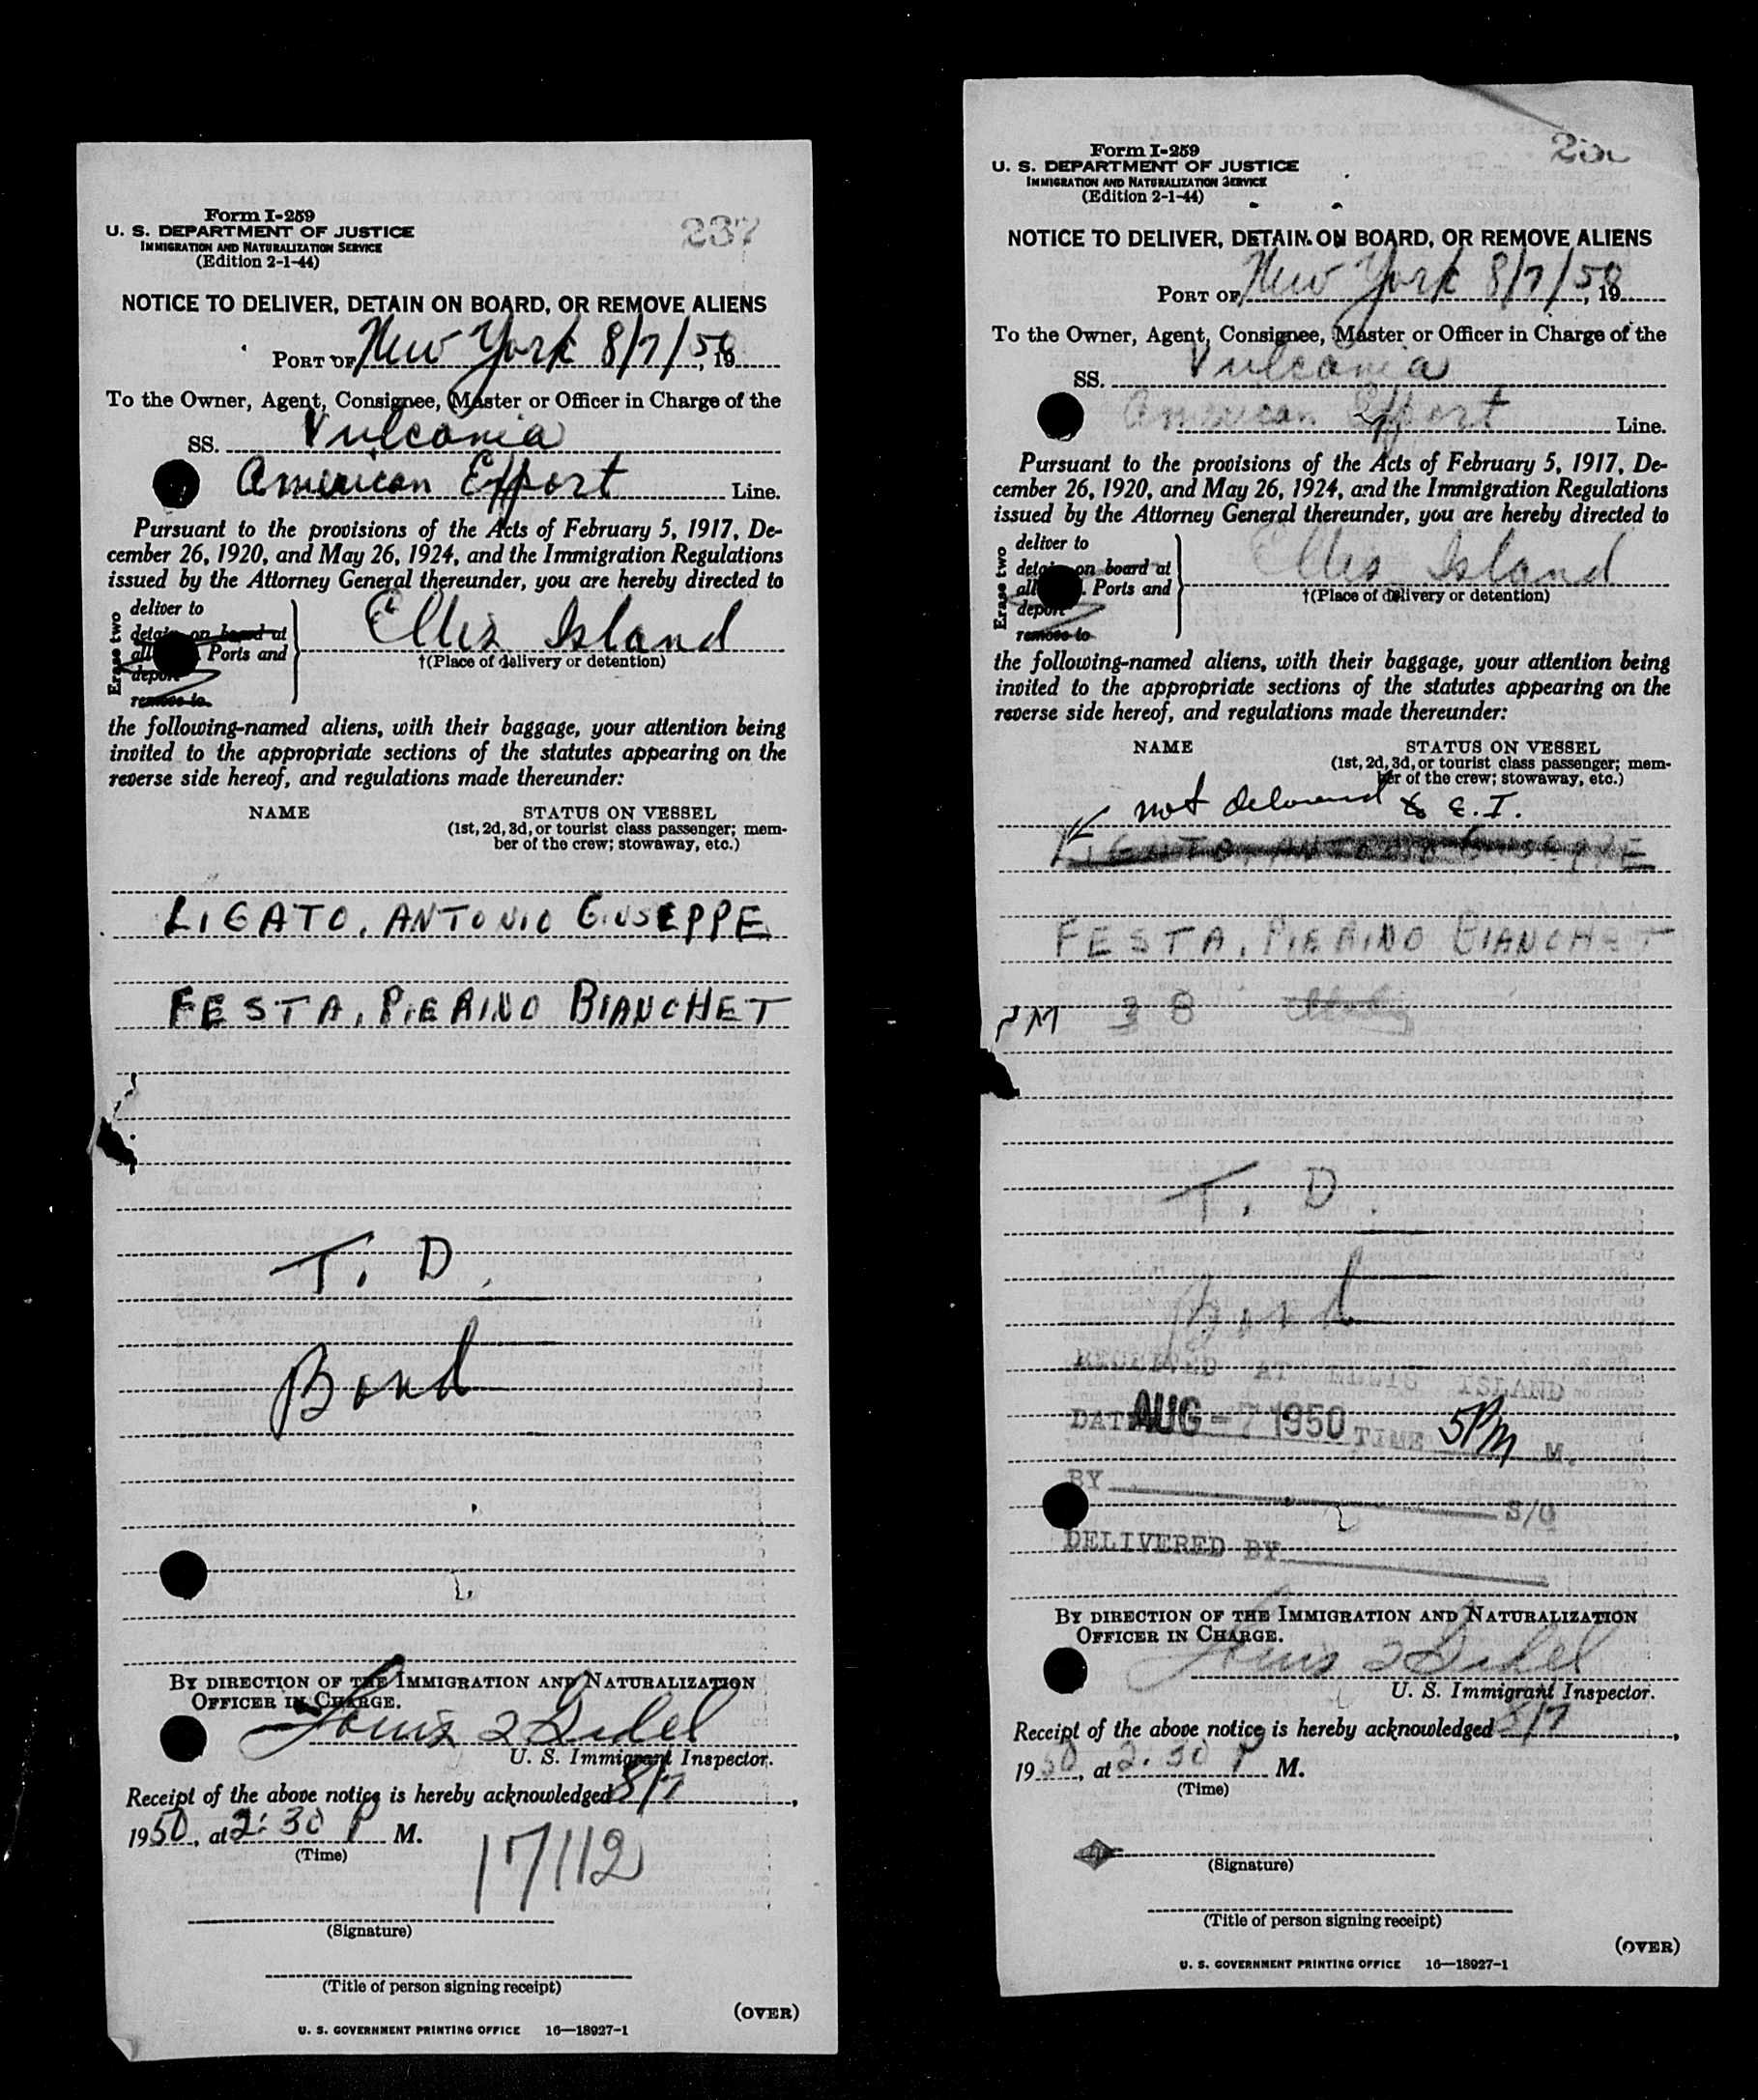 Form I-259
U. S. DEPARTMENT OF JUSTICE
IMMIGRATION AND NATURALIZATION SERVICE
(Edition 2-1-44)
237
NOTICE TO DELIVER, DETAIN ON BOARD, OR REMOVE ALIENS
PORT OF New York 8/7/50, 19
To the Owner, Agent, Consignee, Master or Officer in Charge of the
SS. Vulcania
American Export Line.
Pursuant to the provisions of the Acts of February 5, 1917, De-
cember 26, 1920, and May 26, 1924, and the Immigration Regulations
issued by the Attorney General thereunder, you are hereby directed to
Erase two
deliver to
detain on board at
all Ports and
deport
remove to
Ellis Island
†(Place of delivery or detention)
the following-named aliens, with their baggage, your attention being
invited to the appropriate sections of the statutes appearing on the
reverse side hereof, and regulations made thereunder:
NAME STATUS ON VESSEL
(1st, 2d, 3d, or tourist class passenger; mem-
ber of the crew; stowaway, etc.)
LIGATO, ANTONIO GIUSEPPE
FESTA, PIERINO BIANCHET
T. D.
Bond
BY DIRECTION OF THE IMMIGRATION AND NATURALIZATION
OFFICER IN CHARGE.
Louis
U. S. Immigrant Inspector.
Receipt of the above notice is hereby acknowledged 8/7,
1950, at 2:30 P M.
(Time)
17112
(Signature)
(Title of person signing receipt)
(OVER)
U. S. GOVERNMENT PRINTING OFFICE 16—18927-1
Form I-259
U. S. DEPARTMENT OF JUSTICE
IMMIGRATION AND NATURALIZATION SERVICE
(Edition 2-1-44)
NOTICE TO DELIVER, DETAIN ON BOARD, OR REMOVE ALIENS
PORT OF New York 8/7/50, 19
To the Owner, Agent, Consignee, Master or Officer in Charge of the
SS. Vulcania
American Export Line.
Pursuant to the provisions of the Acts of February 5, 1917, De-
cember 26, 1920, and May 26, 1924, and the Immigration Regulations
issued by the Attorney General thereunder, you are hereby directed to
Erase two
deliver to
detain on board at
all Ports and
deport
remove to
Ellis Island
†(Place of delivery or detention)
the following-named aliens, with their baggage, your attention being
invited to the appropriate sections of the statutes appearing on the
reverse side hereof, and regulations made thereunder:
NAME STATUS ON VESSEL
(1st, 2d, 3d, or tourist class passenger; mem-
ber of the crew; stowaway, etc.)
not delivered to E.I.
LIGATO, ANTONIO GIUSEPPE
FESTA, PIERINO BIANCHET
M 38
T. D.
Bond
RECEIVED AT ELLIS ISLAND
DATE AUG -7 1950 TIME 5PM M.
BY S/G
DELIVERED BY
BY DIRECTION OF THE IMMIGRATION AND NATURALIZATION
OFFICER IN CHARGE.
Louis
U. S. Immigrant Inspector.
Receipt of the above notice is hereby acknowledged 8/7,
1950, at 2:30 P M.
(Time)
(Signature)
(Title of person signing receipt)
(OVER)
U. S. GOVERNMENT PRINTING OFFICE 16—18927-1